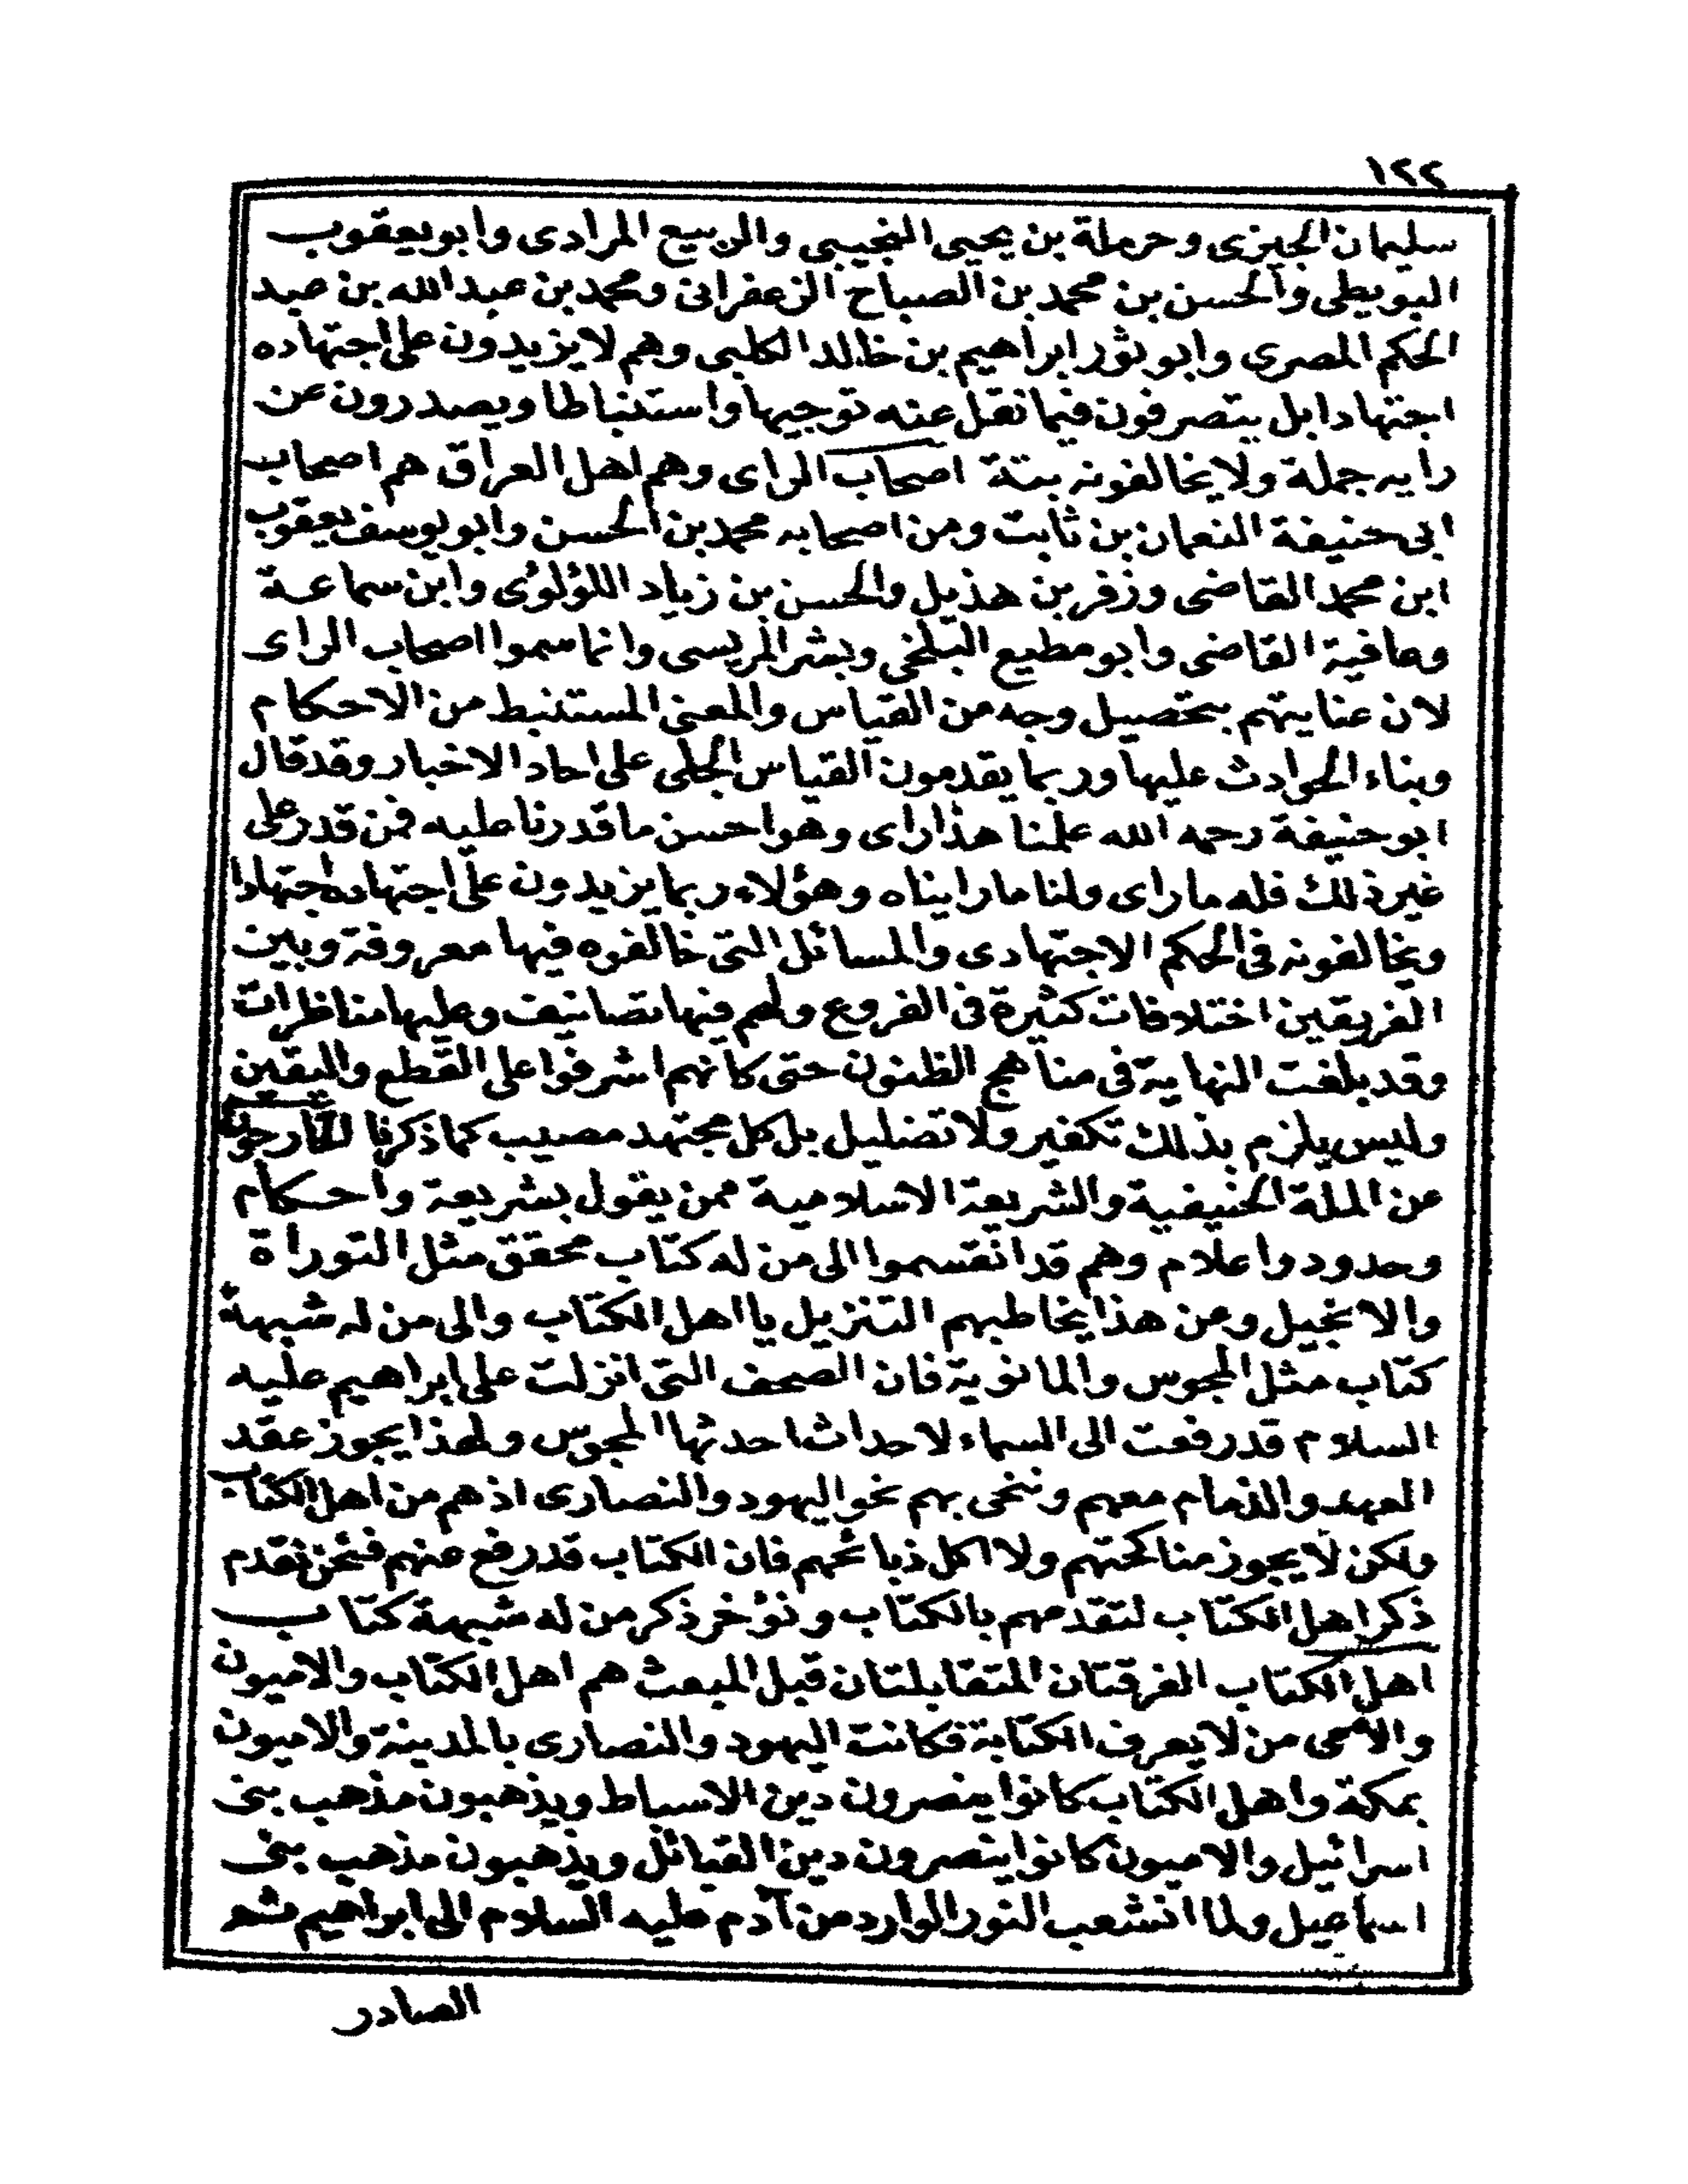 ١٢٢
سليمان الجيزى وحرملة بن يحيى النجيبى والربيع المرادى وابو يعقوب
البويطى والحسن بن محمد بن الصباح الزعفرانى ومحمد بن عبد الله بن عبد
الحكم المصرى وابو ثور ابراهيم بن خالد الكلبى وهم لا يزيدون على اجتهاده
اجتهادا بل يتصرفون فيما نقل عنه توجيها واستنباطا ويصدرون عن
رايه جملة ولا يخالفونه بتة اصحاب الراى وهم اهل العراق هم اصحاب
ابى حنيفة النعمان بن ثابت ومن اصحابه محمد بن الحسن وابو يوسف يعقوب
ابن محمد القاضى وزفر بن هذيل والحسن بن زياد اللؤلؤى وابن سماعة
وعافية القاضى وابو مطيع البلخى وبشر المريسى وانما سموا اصحاب الراى
لان عنايتهم بتحصيل وجه من القياس والمعنى المستنبط من الاحكام
وبناء الحوادث عليها وربما يقدمون القياس الجلى على احاد الاخبار وقد قال
ابو حنيفة رحمه الله علمنا هذا راى وهو احسن ما قدرنا عليه فمن قدر على
غير ذلك فله ما راى ولنا ما رايناه وهؤلاء ربما يزيدون على اجتهاده اجتهادا
ويخالفونه فى الحكم الاجتهادى والمسائل التى خالفوه فيها معروفة وبين
الفريقين اختلافات كثيرة فى الفروع ولهم فيها تصانيف وعليها مناظرات
وقد بلغت النهاية فى مناهج الظنون حتى كانهم اشرفوا على القطع واليقين
وليس يلزم بذلك تكفير ولا تضليل بل كل مجتهد مصيب كما ذكرنا الخارجون
عن الملة الحنيفية والشريعة الاسلامية ممن يقول بشريعة واحكام
وحدود واعلام وهم قد انقسموا الى من له كتاب محقق مثل التوراة
والانجيل وعن هذا يخاطبهم التنزيل يا اهل الكتاب والى من له شبهة
كتاب مثل المجوس والمانوية فان الصحف التى انزلت على ابراهيم عليه
السلام قد رفعت الى السماء لاحداث احدثها المجوس ولهذا يجوز عقد
العهد والذمام معهم وننحى بهم نحو اليهود والنصارى اذ هم من اهل الكتاب
ولكن لا يجوز مناكحتهم ولا اكل ذبائحهم فان الكتاب قد رفع عنهم فنحن نقدم
ذكر اهل الكتاب لتقدمهم بالكتاب ونؤخر ذكر من له شبهة كتاب
اهل الكتاب الفرقتان المتقابلتان قبل المبعث هم اهل الكتاب والاميون
والامى من لا يعرف الكتابة فكانت اليهود والنصارى بالمدينة والاميون
بمكة واهل الكتاب كانوا ينصرون دين الاسباط ويذهبون مذهب بنى
اسرائيل والاميون كانوا ينصرون دين القبائل ويذهبون مذهب بنى
اسماعيل ولما انشعب النور الوارد من آدم عليه السلام الى ابراهيم ثم
الصادر